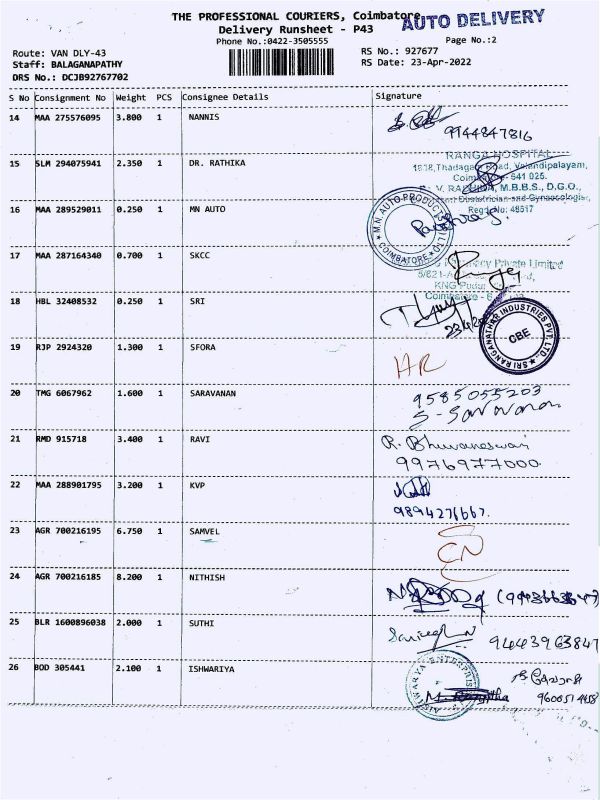 THE PROFESSIONAL COURIERS, Coimbatore
AUTO DELIVERY
Delivery Runsheet - P43
Phone No.:0422-3505555
Page No.:2
Route: VAN DLY-43
RS No.: 927677
Staff: BALAGANAPATHY
RS Date: 23-Apr-2022
DRS No.: DCJB92767702
S No Consignment No Weight PCS Consignee Details Signature
14 MAA 275576095 3.800 1 NANNIS
9944847816
RANGA HOSPITAL
15 SLM 294075941 2.350 1 DR. RATHIKA
Road, Velandipalayam,
Coimbatore - 641 025.
M.B.B.S., D.G.O.,
Obstetrician and Gynaecologist
Regd.No: 48517
16 MAA 289529011 0.250 1 MN AUTO
M.N. AUTO PRODUCTS (P) LTD
COIMBATORE
17 MAA 287164340 0.700 1 SKCC
Private Limited
18 HBL 32408532 0.250 1 SRI
SRI RANGANATHAR INDUSTRIES PVT. LTD.
CBE
19 RJP 2924320 1.300 1 SFORA
HR
20 TMG 6067962 1.600 1 SARAVANAN
9585055203
S-Saravanan
21 RMD 915718 3.400 1 RAVI
R. Bhuvaneswari
9976977000
22 MAA 288901795 3.200 1 KVP
9894276667.
23 AGR 700216195 6.750 1 SAMVEL
CN
24 AGR 700216185 8.200 1 NITHISH
25 BLR 1600896038 2.000 1 SUTHI
9443963847
26 BOD 305441 2.100 1 ISHWARIYA
AISHWARYA ENTERPRISES